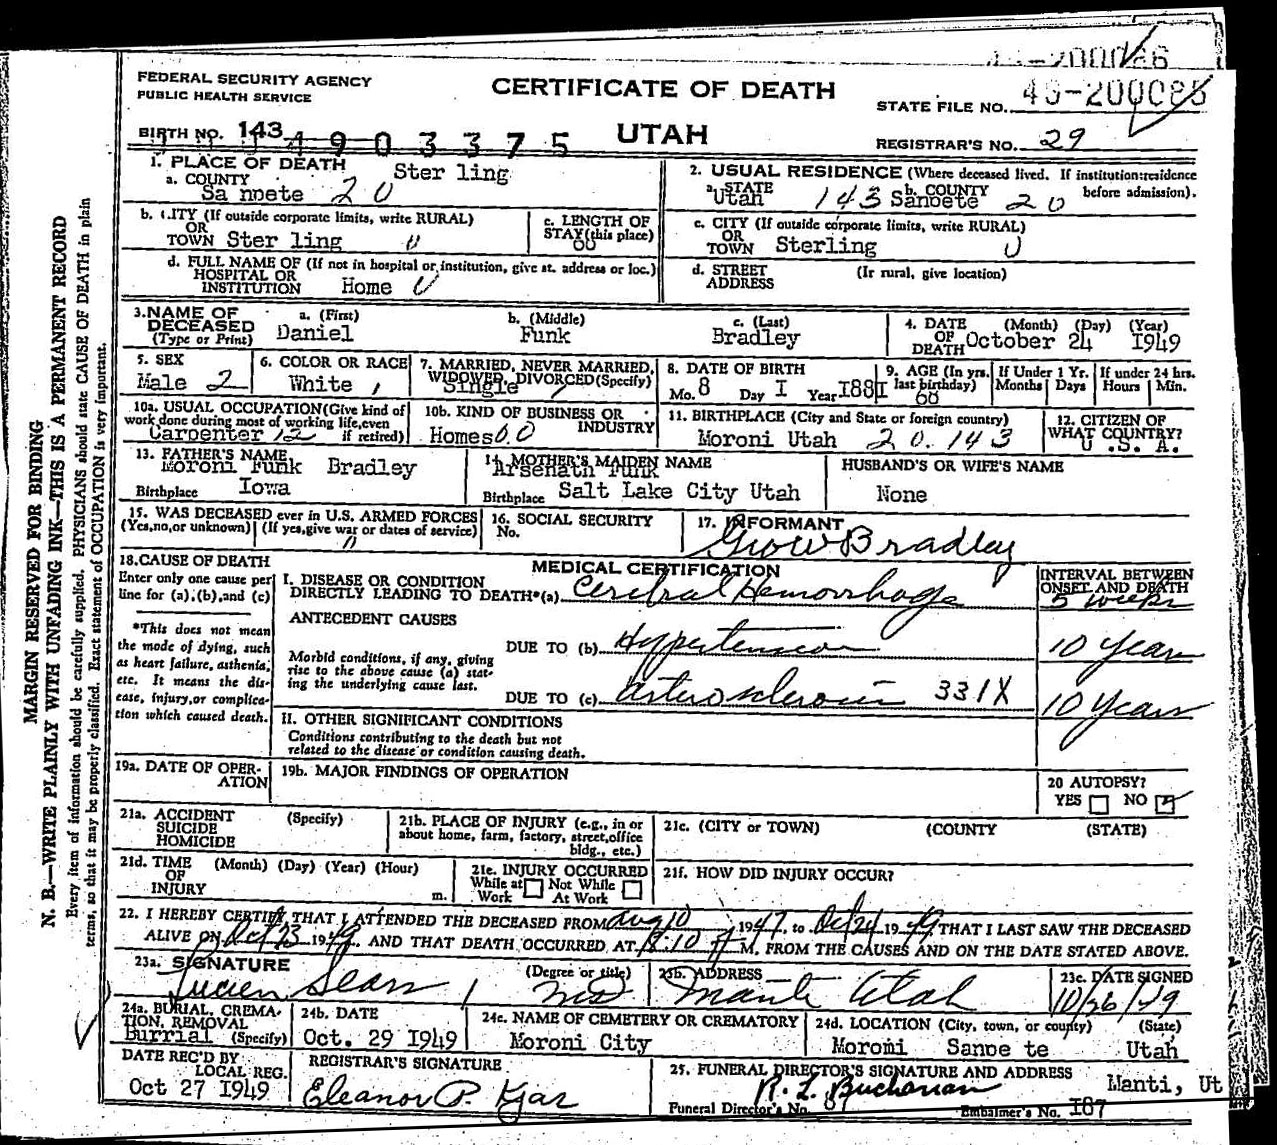 FEDERAL SECURITY AGENCY
PUBLIC HEALTH SERVICE
CERTIFICATE OF DEATH
STATE FILE NO.
BIRTH NO. 143 4903375
UTAH
REGISTRAR'S NO. 29
1. PLACE OF DEATH Ster ling
a. COUNTY
Sa npete 20
2. USUAL RESIDENCE (Where deceased lived. If institution:residence before admission).
a. STATE Utah 143 b. COUNTY Sanpete 20
b. CITY (If outside corporate limits, write RURAL)
OR
TOWN Ster ling
c. LENGTH OF STAY (this place)
c. CITY (If outside corporate limits, write RURAL)
OR
TOWN Sterling
d. FULL NAME OF (If not in hospital or institution, give st. address or loc.)
HOSPITAL OR
INSTITUTION Home
d. STREET ADDRESS (Ir rural, give location)
3.NAME OF DECEASED (Type or Print)
a. (First) Daniel
b. (Middle) Funk
c. (Last) Bradley
4. DATE OF DEATH (Month) (Day) (Year)
October 24 I949
5. SEX
Male 2
6. COLOR OR RACE
White
7. MARRIED, NEVER MARRIED, WIDOWED, DIVORCED (Specify)
Single
8. DATE OF BIRTH
Mo. 8 Day I Year I88I
9. AGE (In yrs. last birthday)
68
If Under 1 Yr. Months Days
If under 24 hrs. Hours Min.
10a. USUAL OCCUPATION(Give kind of work done during most of working life,even if retired)
Carpenter 12
10b. KIND OF BUSINESS OR INDUSTRY
Homes
11. BIRTHPLACE (City and State or foreign country)
Moroni Utah 20.143
12. CITIZEN OF WHAT COUNTRY?
U .S. A.
13. FATHER'S NAME
Moroni Funk Bradley
Birthplace Iowa
14. MOTHER'S MAIDEN NAME
Arsenath Funk
Birthplace Salt Lake City Utah
HUSBAND'S OR WIFE'S NAME
None
15. WAS DECEASED ever in U.S. ARMED FORCES
(Yes,no,or unknown) (If yes,give war or dates of service)
16. SOCIAL SECURITY
No.
17. INFORMANT
Bradley
18.CAUSE OF DEATH
Enter only one cause per line for (a),(b),and (c)
*This does not mean the mode of dying, such as heart failure, asthenia, etc. It means the disease, injury,or complication which caused death.
MEDICAL CERTIFICATION
I. DISEASE OR CONDITION
DIRECTLY LEADING TO DEATH*(a) Cerebral Hemorrhage
INTERVAL BETWEEN ONSET AND DEATH
5 weeks
ANTECEDENT CAUSES
DUE TO (b) Hypertension
10 Years
Morbid conditions, if any, giving rise to the above cause (a) stating the underlying cause last.
DUE TO (c) Arteriosclerosis 331X
10 Years
II. OTHER SIGNIFICANT CONDITIONS
Conditions contributing to the death but not related to the disease or condition causing death.
19a. DATE OF OPERATION
19b. MAJOR FINDINGS OF OPERATION
20 AUTOPSY?
YES NO
21a. ACCIDENT SUICIDE HOMICIDE (Specify)
21b. PLACE OF INJURY (e.g., in or about home, farm, factory, street,office bldg., etc.)
21c. (CITY or TOWN) (COUNTY (STATE)
21d. TIME OF INJURY (Month) (Day) (Year) (Hour) m.
21e. INJURY OCCURRED
While at Work Not While At Work
21f. HOW DID INJURY OCCUR?
22. I HEREBY CERTIFY THAT I ATTENDED THE DECEASED FROM Aug 10 1947, to Oct 24 1949 THAT I LAST SAW THE DECEASED
ALIVE ON Oct 23 1949, AND THAT DEATH OCCURRED AT M. FROM THE CAUSES AND ON THE DATE STATED ABOVE.
23a. SIGNATURE (Degree or title)
Lucien Sears MD
23b. ADDRESS
Manti Utah
23c. DATE SIGNED
10/26/49
24a. BURIAL, CREMATION, REMOVAL (Specify)
Burrial
24b. DATE
Oct. 29 I949
24c. NAME OF CEMETERY OR CREMATORY
Moroni City
24d. LOCATION (City, town, or county) (State)
Moroni Sanpe te Utah
DATE REC'D BY LOCAL REG.
Oct 27 I949
REGISTRAR'S SIGNATURE
Eleanor P. Kjar
25. FUNERAL DIRECTOR'S SIGNATURE AND ADDRESS
R. L. Buchanan Manti, Ut
Funeral Director's No. 87 Embalmer's No. I87
MARGIN RESERVED FOR BINDING
N. B.—WRITE PLAINLY WITH UNFADING INK—THIS IS A PERMANENT RECORD
Every item of information should be carefully supplied. PHYSICIANS should state CAUSE OF DEATH in plain
terms, so that it may be properly classified. Exact statement of OCCUPATION is very important.